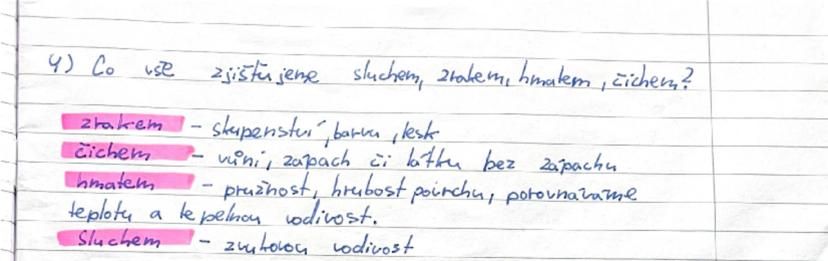 4) Co vše zjišťujeme sluchem, zrakem, hmatem, čichem?
zrakem - skupenství, barvu, lesk
čichem - vůni, zápach či látku bez zápachu
hmatem - pružnost, hrubost povrchu, porovnáváme
teplotu a tepelnou vodivost.
Sluchem - zvukovou vodivost